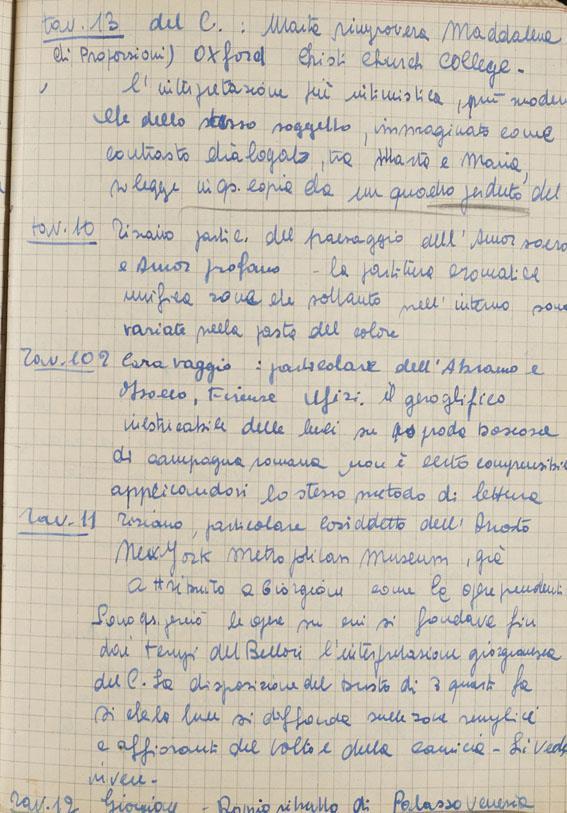 tav. 13 del C. : Marta rimprovera Maddalena
(di Proporzioni) Oxford Christi Church College -
l'interpretazione più intimistica, più moder
che dello stesso soggetto, immaginato come
contrasto dialogato, tra Marta e Maria,
si legge in qs. copia da un quadro perduto del
tav. 10 Tiziano partic. del paesaggio dell'Amor sacro
e Amor profano - la partitura cromatica
unifica zone che soltanto nell'interno sono
variate nella pasta del colore
Tav. 10 2 Caravaggio : particolare dell'Abramo e
Isacco, Firenze Ufizi. il geroglifico
inestricabile delle luci su proda boscosa
di campagna romana non è certo comprensibil
applicandosi lo stesso metodo di lettura
Tav. 11 Tiziano, particolare cosiddetto dell'Ariosto
New York Metropolitan Museum, già
attribuito a Giorgione come le opere precedenti
Sono qs. però le opere su cui si fondava fin
dai tempi del Bellori l'interpretazione giorgionesca
del C. La disposizione del busto di 3 quarti fa
sì che la luce si diffonda sulle zone semplici
e affioranti del volto e della camicia - Si veda
invece -
Tav. 12 Giorgione - Doppio ritratto di Palazzo Venezia